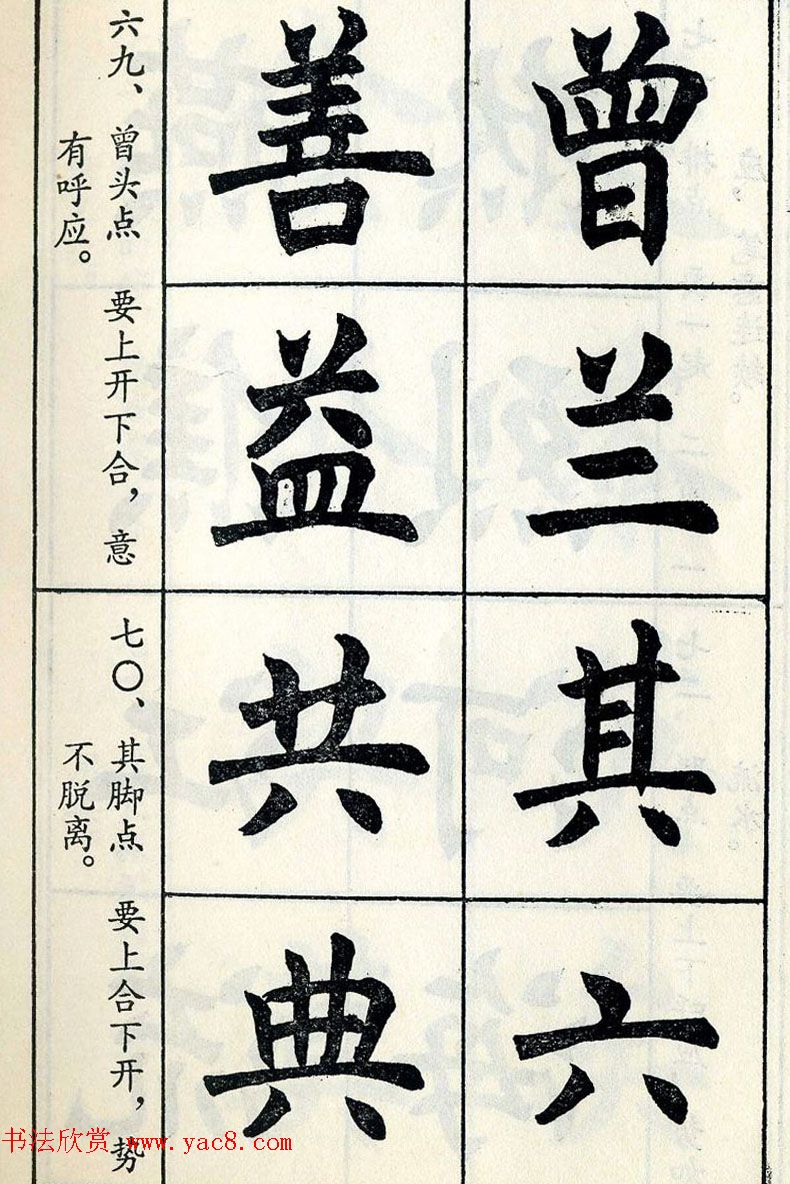 曾 善
兰 益
六九、曾头点 要上开下合，意
有呼应。
其 共
六 典
七〇、其脚点 要上合下开，势
不脱离。
书法欣赏 www.yac8.com